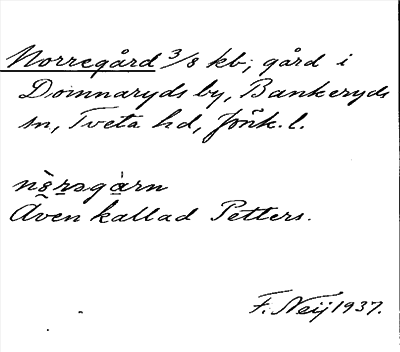 Norregård 3/8 kb; gård i
Domnaryds by, Bankeryds
sn, Tveta hd, Jönk. l.
nə̀rəgàrn
Även kallad Petters.
F. Neij 1937.